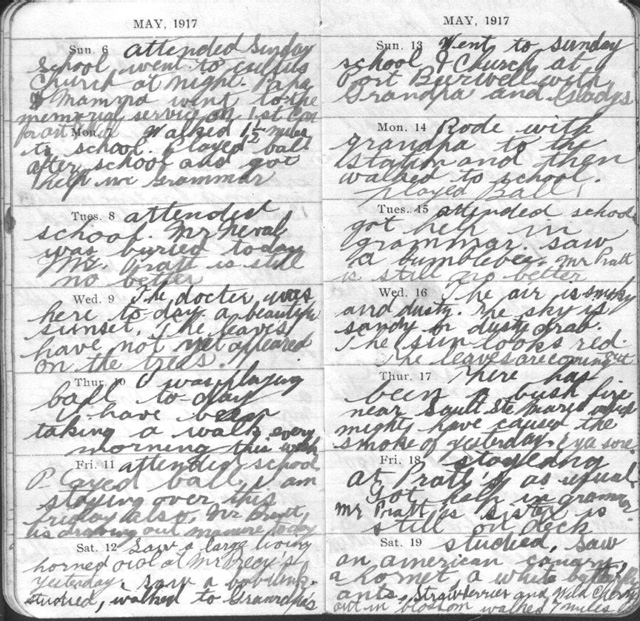 MAY, 1917
Sun. 6 attended Sunday
School went to
Church at night. Papa
& Mamma went to the
memorial service on 1st Con
Mon. 7 Walked 1½ miles
to school. Played ball
after school and got
help in Grammar
Tues. 8 attended
school. Mr Neval
was buried today
Mr. Pratt is still
no better
Wed. 9 The docter was
here to-day a beautiful
sunset. The leaves
have not yet appeared
on the trees.
Thur. 10 I was playing
ball to-day
I have been
taking a walk every
morning this week
Fri. 11 attended school
Played ball, I am
staying over this
friday also, Mr Pratt
is drawing out manure today
Sat. 12 Saw a large living
horned owl at Mr
yesterday. Saw a bobolink.
studied, walked to Grandpa's
MAY, 1917
Sun. 13 Went to Sunday
school & Church at
Port Burwell with
Grandpa and Gladys
Mon. 14 Rode with
grandpa to the
station and then
walked to school.
played Ball
Tues. 15 attended school
got help in
grammar. saw
a bumblebee. Mr Pratt
is still no better
Wed. 16 The air is smoky
and dusty. The sky is
sandy or dusty drab.
The sun looks red.
The leaves are coming out
Thur. 17 There has
been a bush fire
near Sault Ste Marie which
might have caused the
smoke of yesterday.
Fri. 18 staying
at Pratt's as usual
Got help in grammar
Mr Pratt's sister is
still on deck
Sat. 19 studied, Saw
an american canary,
a hornet, a white butterfly
ants, Strawberries and Wild Cherry
out in blossom walked 7 miles